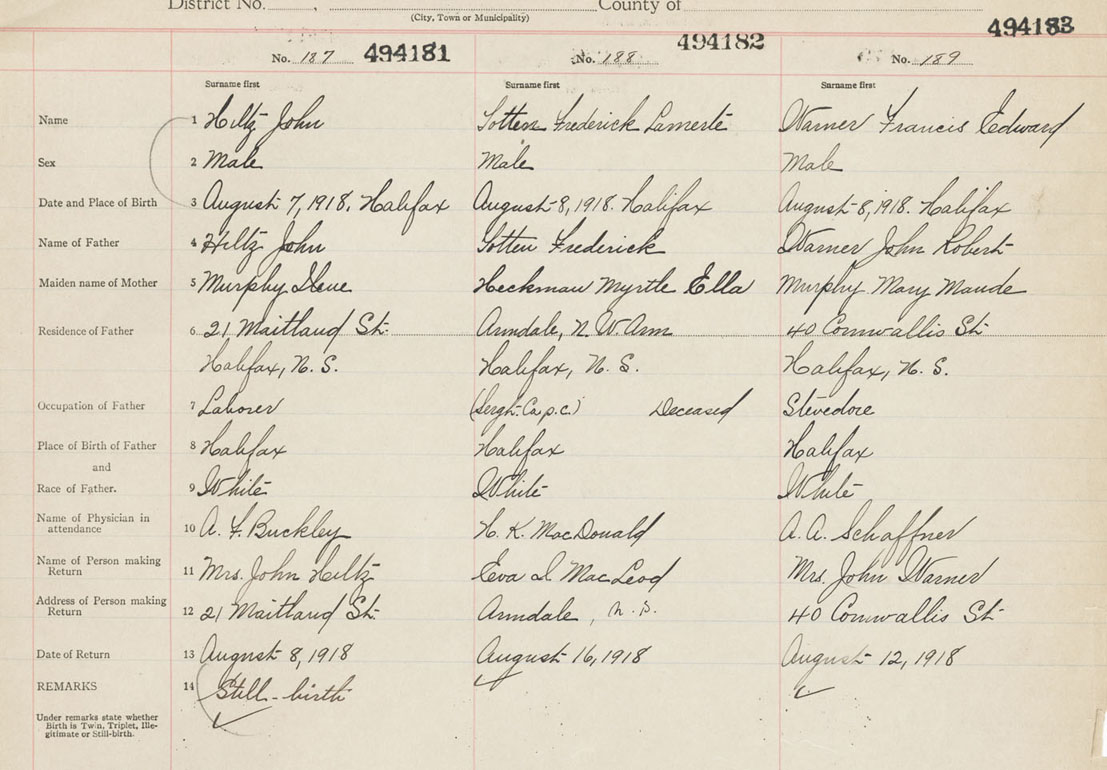 District No. , County of
(City, Town or Municipality)
No. 187 494181 No. 188 494182 No. 189 494183
Surname first Surname first Surname first
Name 1 Hiltz John Sotten Frederick Lamerte Warner Francis Edward
Sex 2 Male Male Male
Date and Place of Birth 3 August 7, 1918. Halifax August 8, 1918. Halifax August 8, 1918. Halifax
Name of Father 4 Hiltz John Sotten Frederick Warner John Robert
Maiden name of Mother 5 Murphy Heckman Myrtle Ella Murphy Mary Maude
Residence of Father 6 21 Maitland St. Armdale, N. W. Arm 40 Cornwallis St
Halifax, N. S. Halifax, N. S. Halifax, N. S.
Occupation of Father 7 Laborer Deceased Stevedore
Place of Birth of Father 8 Halifax Halifax Halifax
and
Race of Father. 9 White White White
Name of Physician in
attendance 10 A. F. Buckley H. K. MacDonald A. A. Schaffner
Name of Person making
Return 11 Mrs. John Hiltz Eva I. MacLeod Mrs. John Warner
Address of Person making
Return 12 21 Maitland St. Armdale, N. S. 40 Cornwallis St
Date of Return 13 August 8, 1918 August 16, 1918 August 12, 1918
REMARKS 14 Still-birth
Under remarks state whether
Birth is Twin, Triplet, Ille-
gitimate or Still-birth.